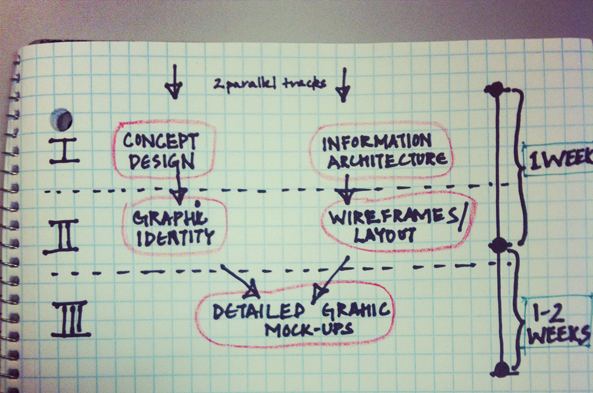 2 parallel tracks
I
CONCEPT
DESIGN
INFORMATION
ARCHITECTURE
1 WEEK
II
GRAPHIC
IDENTITY
WIREFRAMES/
LAYOUT
III
DETAILED GRAHIC
MOCK-UPS
1-2
WEEKS